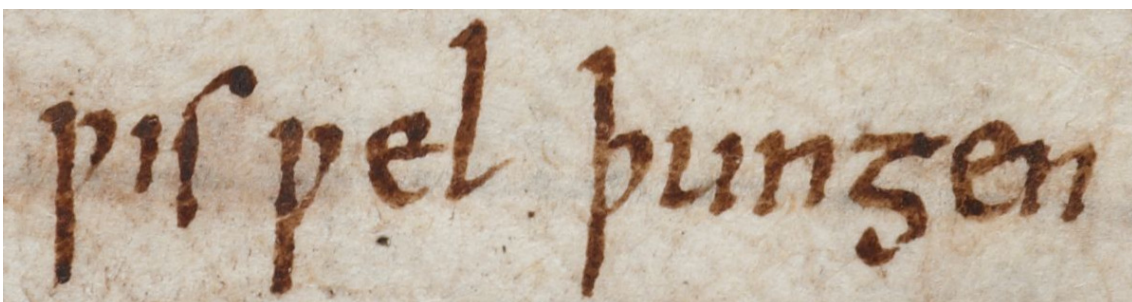 ƿis ƿel þungen